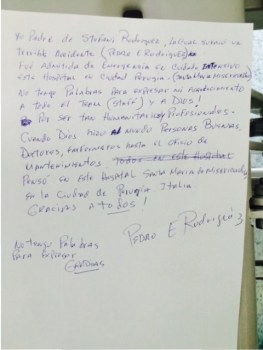 Yo Padre de Stefano Rodriguez, sufrió un
Terrible Accidente (Pedro E Rodriguez)
Fué Admitido de Emergencia en Cuidado Intensivo
este Hospital en Ciudad Perugia.
No tengo Palabras para expresar mi
A todo el Team (Staff) y A Dios!
Por ser tan Humanitarios y Profesionales.
Cuando Dios hizo al mundo Personas Buenas,
Doctores, Enfermeros hasta el de
Mantenimientos, Todos en este Hospital
Pensó en este Hospital Santa Maria de Misericordia
en la Ciudad de Perugia Italia.
Gracias A todos!
No tengo Palabras
Para Explicar
Gracias
Pedro E Rodriguez